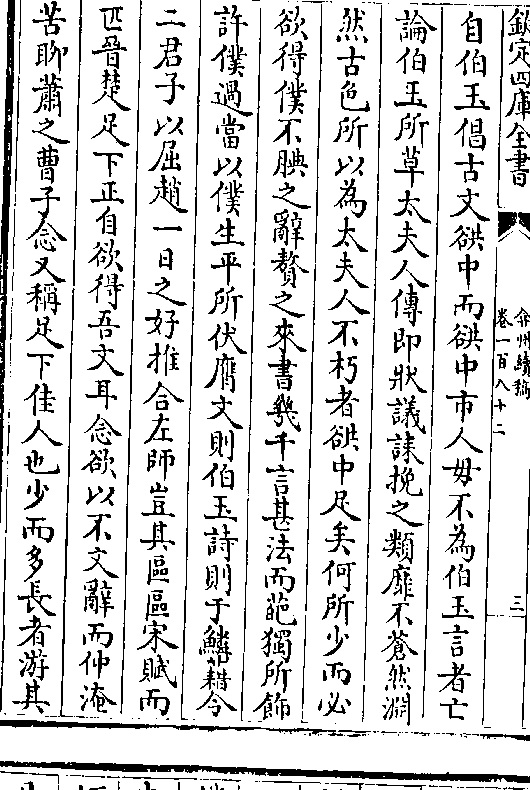 欽定四庫全書
弇州續稿
卷一百八十二
三
自伯玉倡古文歙中而歙中市人毋不為伯玉言者亡
論伯玉所草太夫人傳即狀議誄挽之類靡不蒼然淵
然古色所以為太夫人不朽者歙中足矣何所少而必
欲得僕不腆之辭贅之來書幾千言甚法而葩獨所飾
許僕過當以僕生平所伏膺文則伯玉詩則于鱗藉令
二君子以屈趙一日之好推合左師豈其區區宋賦而
匹晉楚足下正自欲得吾文耳念欲以不文辭而仲淹
苦聊蕭之曹子念又稱足下佳人也少而多長者游其